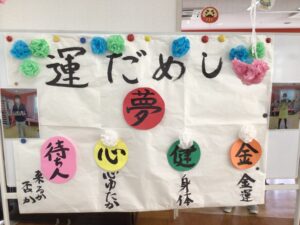 運だめし
夢
待ち人
心
健
金
来るか
否か
心ゆたか
身体
金運